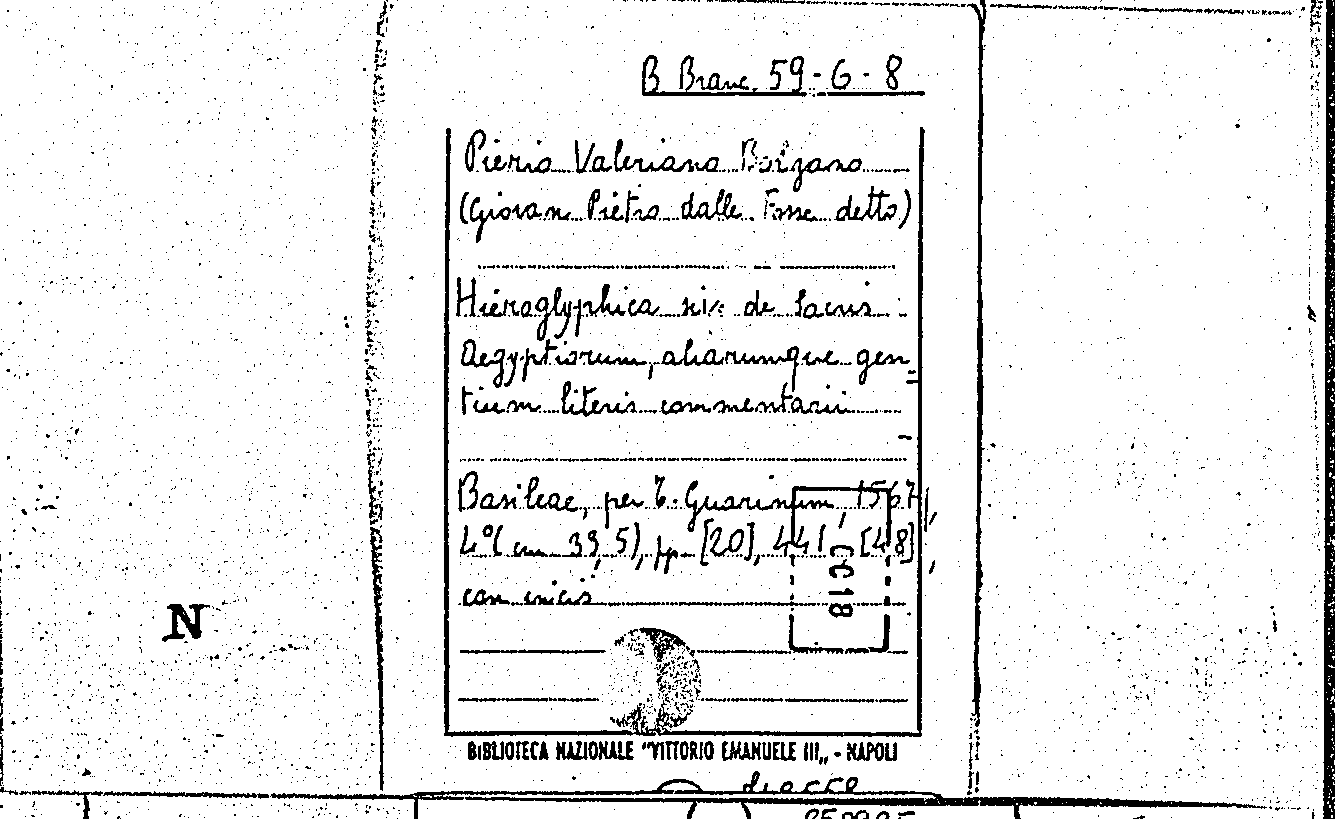 B. Branc. 59-6-8
Pierio Valeriano Bolzano
(Giovan Pietro dalle Fosse detto)
Hieroglyphica sive de sacris
Aegyptiorum, aliarumque gen=
tium literis commentarii
Basileae, per T. Guarinum, 1567,
4° (cm 33,5), pp. [20], 441, [48],
con incis
CC18
N
BIBLIOTECA NAZIONALE "VITTORIO EMANUELE III„ - NAPOLI